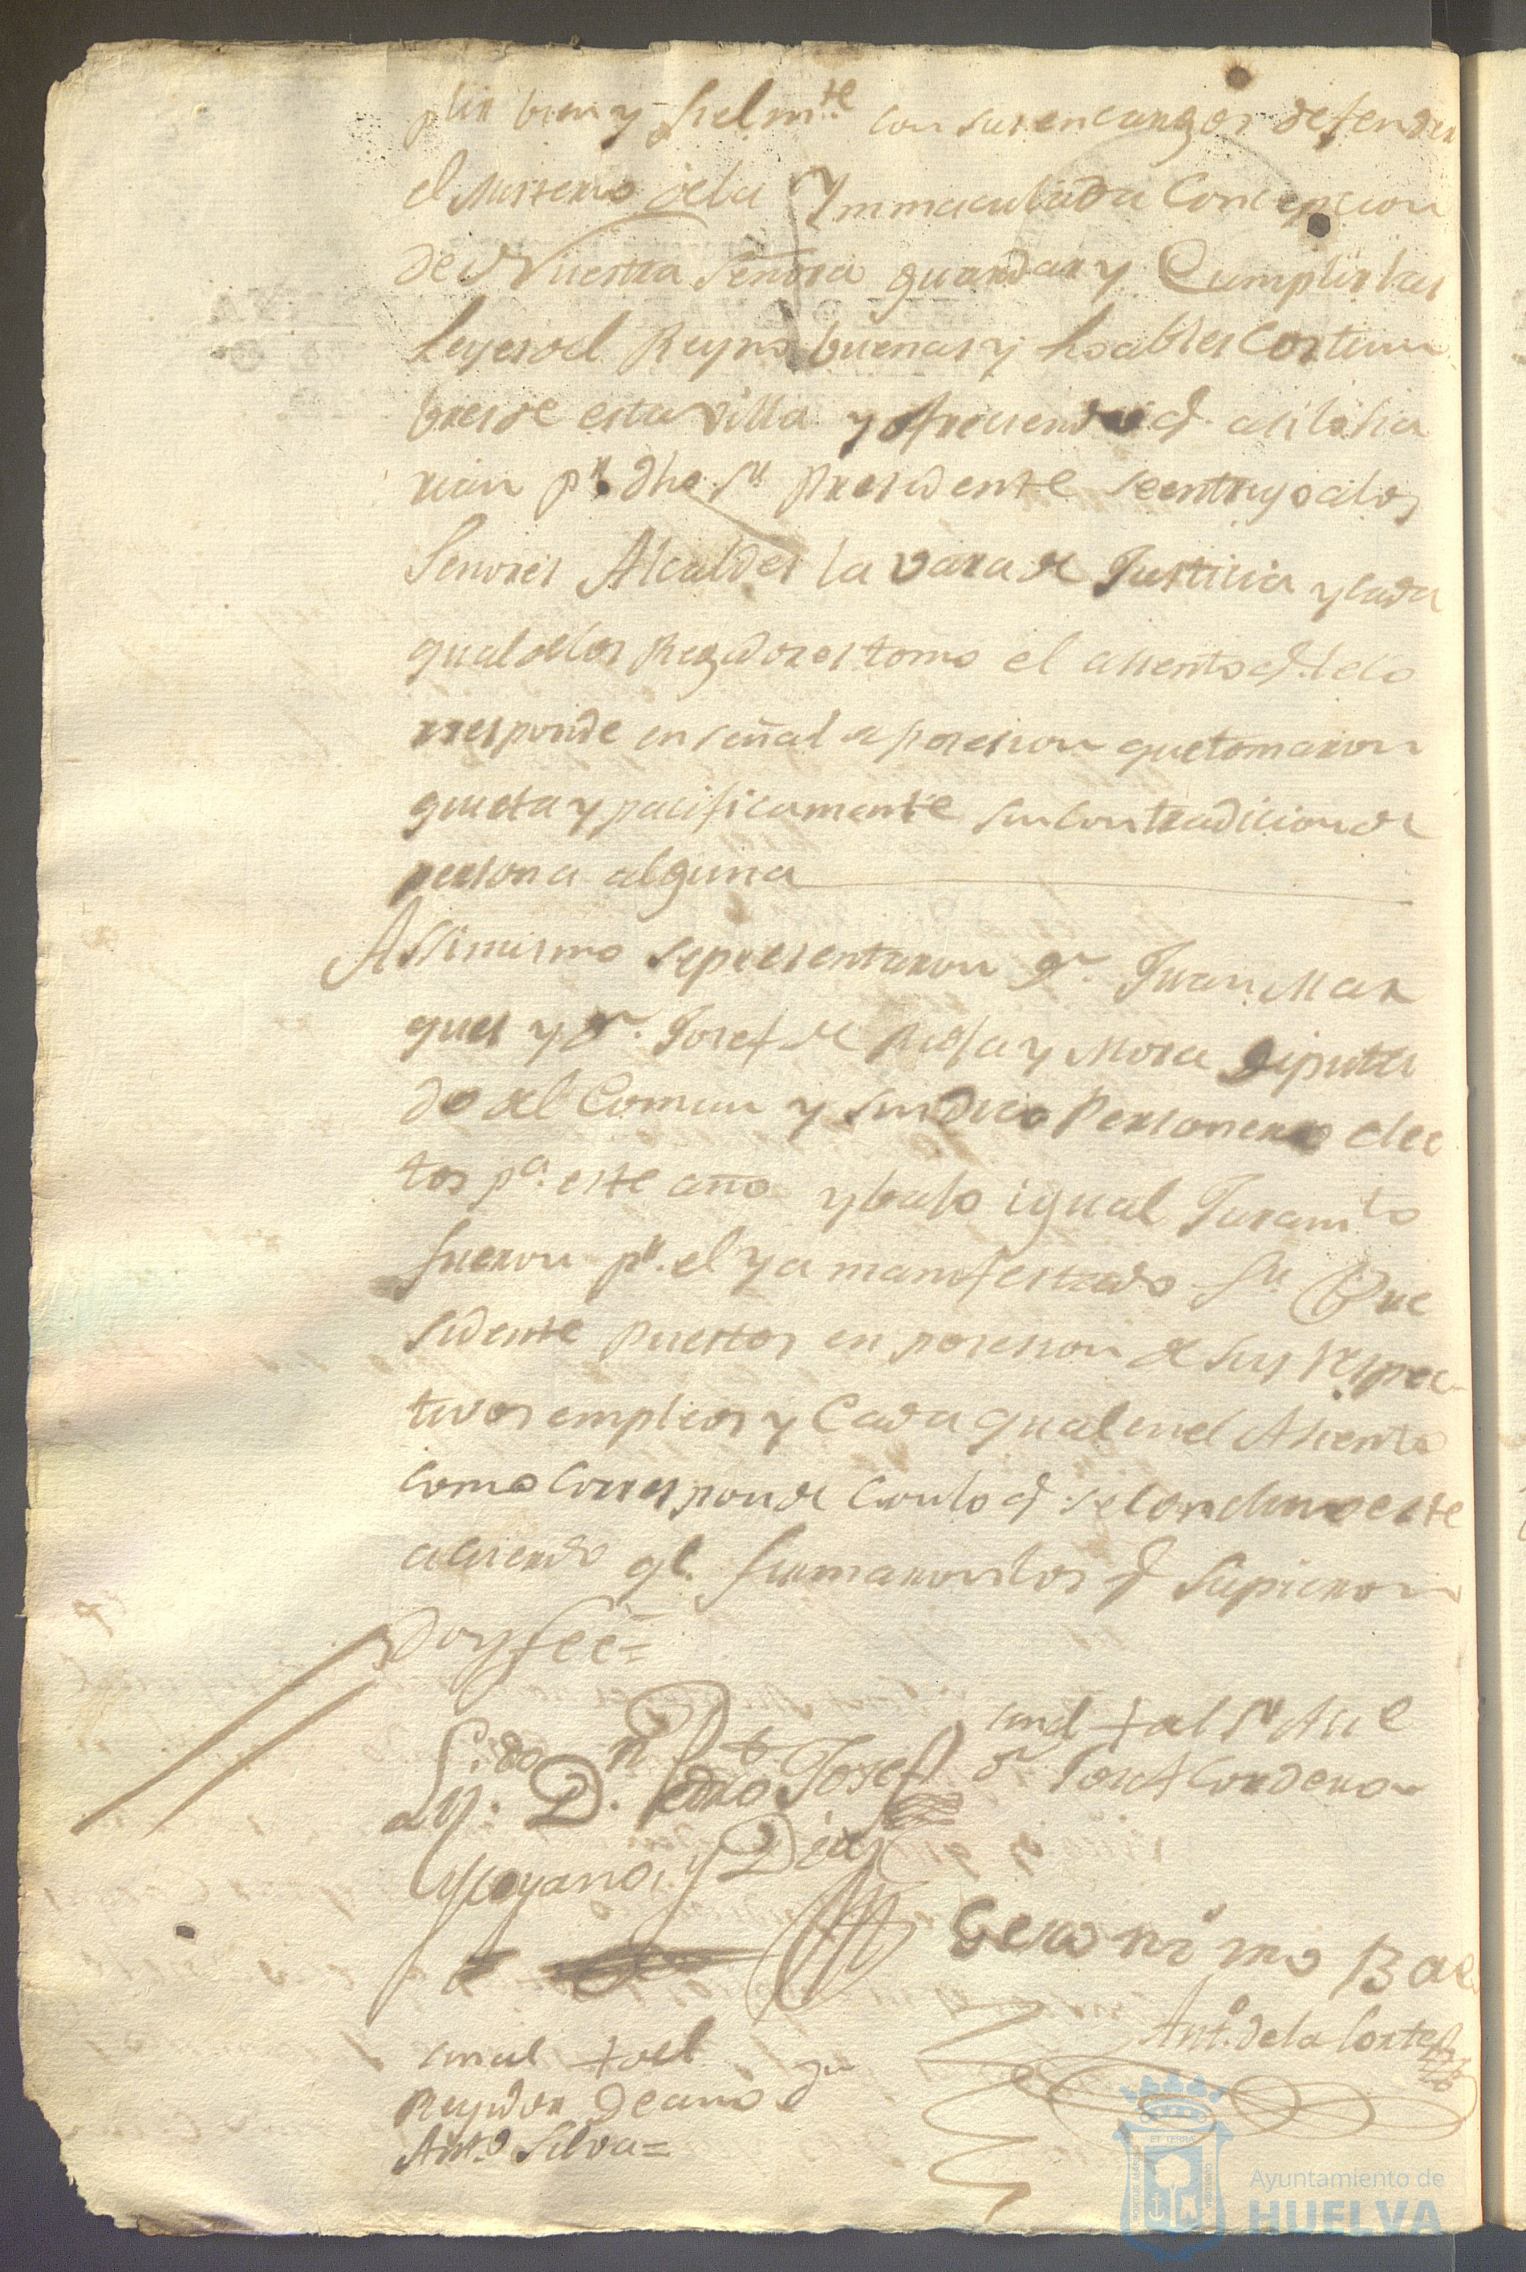 plir bien y fielmte con sus encargos defender
el Misterio dela Ynmaculada Concepcion
de Nuestra Señora guardar y Cumplir las
Leyes del Reyno buenas y loables Costum
bres de esta villa y ofreciendo q. asi lo ha
rian pr. dho Sr. Presidente se entrego a los
Señores Alcaldes la vara de Justicia y cada
qual de los Regidores tomo el asiento q. le co
rresponde en señal de posesion que tomaron
quieta y pacificamente sin contradicion de
persona alguna
Assimismo se presentaron Dn. Juan Mar
ques y Dn. Josef de y Mora Diputa
do del Comun y Sindico Personero elec
tos pa. este año y bajo igual Juramto
fueron pr. el ya manifestado Sr. Pre
sidente puestos en posesion de sus respec-
tivos empleos y Cada qual en el Asiento
como corresponde con lo q. se concluio este
acuerdo ql. firmaron los q. supieron
Doy fee=
Lizdo. Dn. Pedro Josef
Moyano y Diaz
señal + del Sr Alce
Dn Josef Cordero
Geronimo Bae
Anto. de la Corte
señal + del
Rexidor Decano Dn
Anto Silva=
ET TERRA
Ayuntamiento de
HUELVA